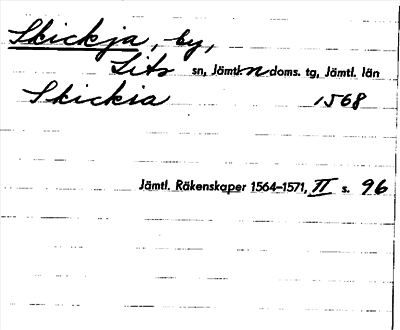 Skickja, by,
Lits sn, Jämtl. n doms. tg, Jämtl. län
Skickia 1568
Jämtl. Räkenskaper 1564–1571, II s. 96